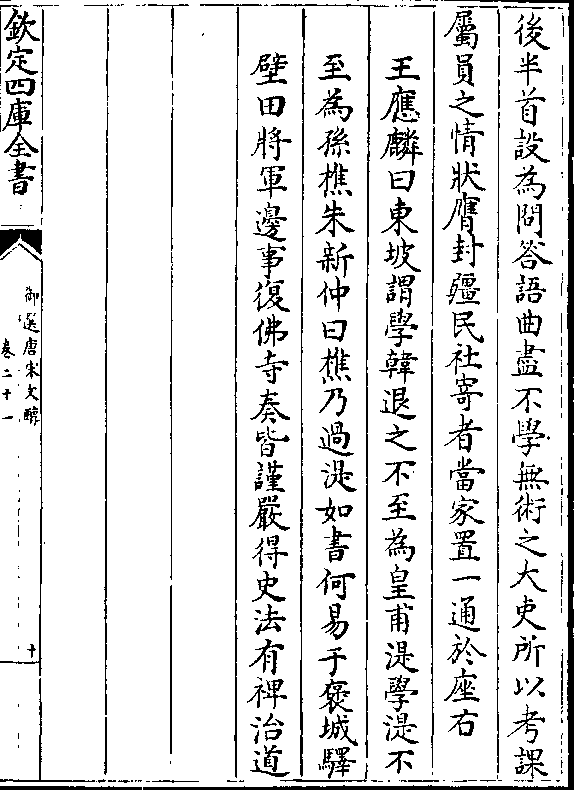 後半首設為問答語曲盡不學無術之大吏所以考課
屬員之情狀膺封疆民社寄者當家置一通於座右
王應麟曰東坡謂學韓退之不至為皇甫湜學湜不
至為孫樵朱新仲曰樵乃過湜如書何易于褒城驛
壁田將軍邊事復佛寺奏皆謹嚴得史法有裨治道
欽定四庫全書
御選唐宋文醇
卷二十一
十